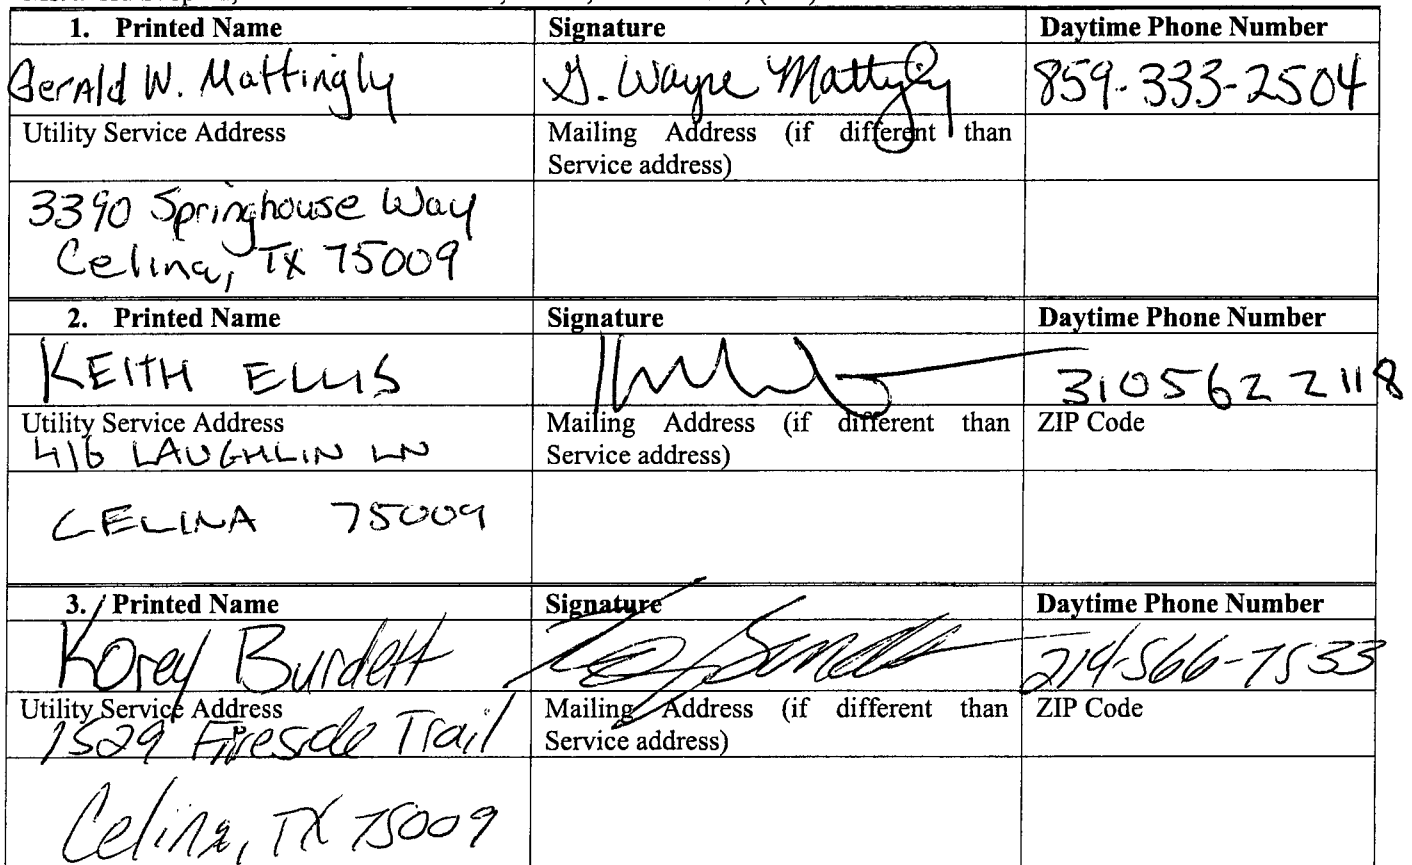 1. Printed Name Signature Daytime Phone Number
Gerald W. Mattingly G. Wayne Mattingly 859-333-2504
Utility Service Address Mailing Address (if different than
Service address)
3390 Springhouse Way
Celina, TX 75009
2. Printed Name Signature Daytime Phone Number
KEITH ELLIS 310 562 2118
Utility Service Address Mailing Address (if different than ZIP Code
416 LAUGHLIN LN Service address)
CELINA 75009
3. Printed Name Signature Daytime Phone Number
Korey Burdett 214-566-7533
Utility Service Address Mailing Address (if different than ZIP Code
1529 Fireside Trail Service address)
Celina, TX 75009